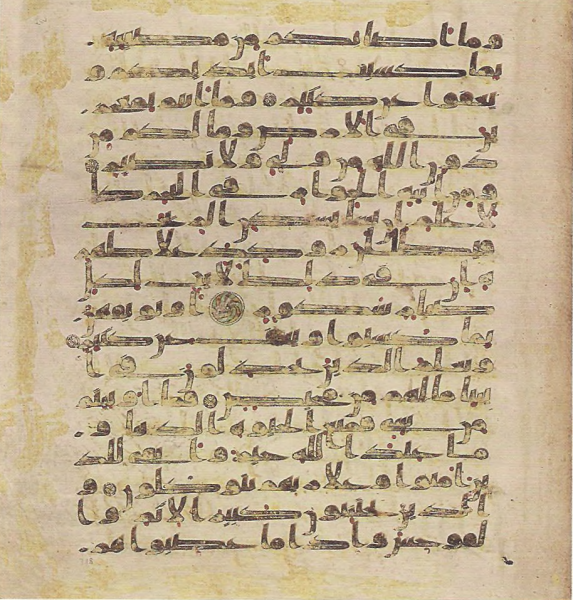 وما اصابكم من مصيبه
بما كسبت ايديكم و
يعفوا عن كثير وما انتم بمعجز
ين في الارض وما لكم من
دون الله من ولي ولا نصير
ومن ايته الجوار في البحر كا
لاعلم ان يشا يسكن الريح
فيظللن رواكد على ظهره
ان في ذلك لايت لكل
صبار شكور او يوبقهن
بما كسبوا ويعف عن كثير
ويعلم الذين يجدلون في ا
يتنا ما لهم من محيص فما اوتيتم
من شي فمتع الحيوه الدنيا و
ما عند الله خير وابقى للذ
ين امنوا وعلى ربهم يتوكلون و
الذين يجتنبون كبير الاثم وا
لفوحش واذا ما غضبوا هم